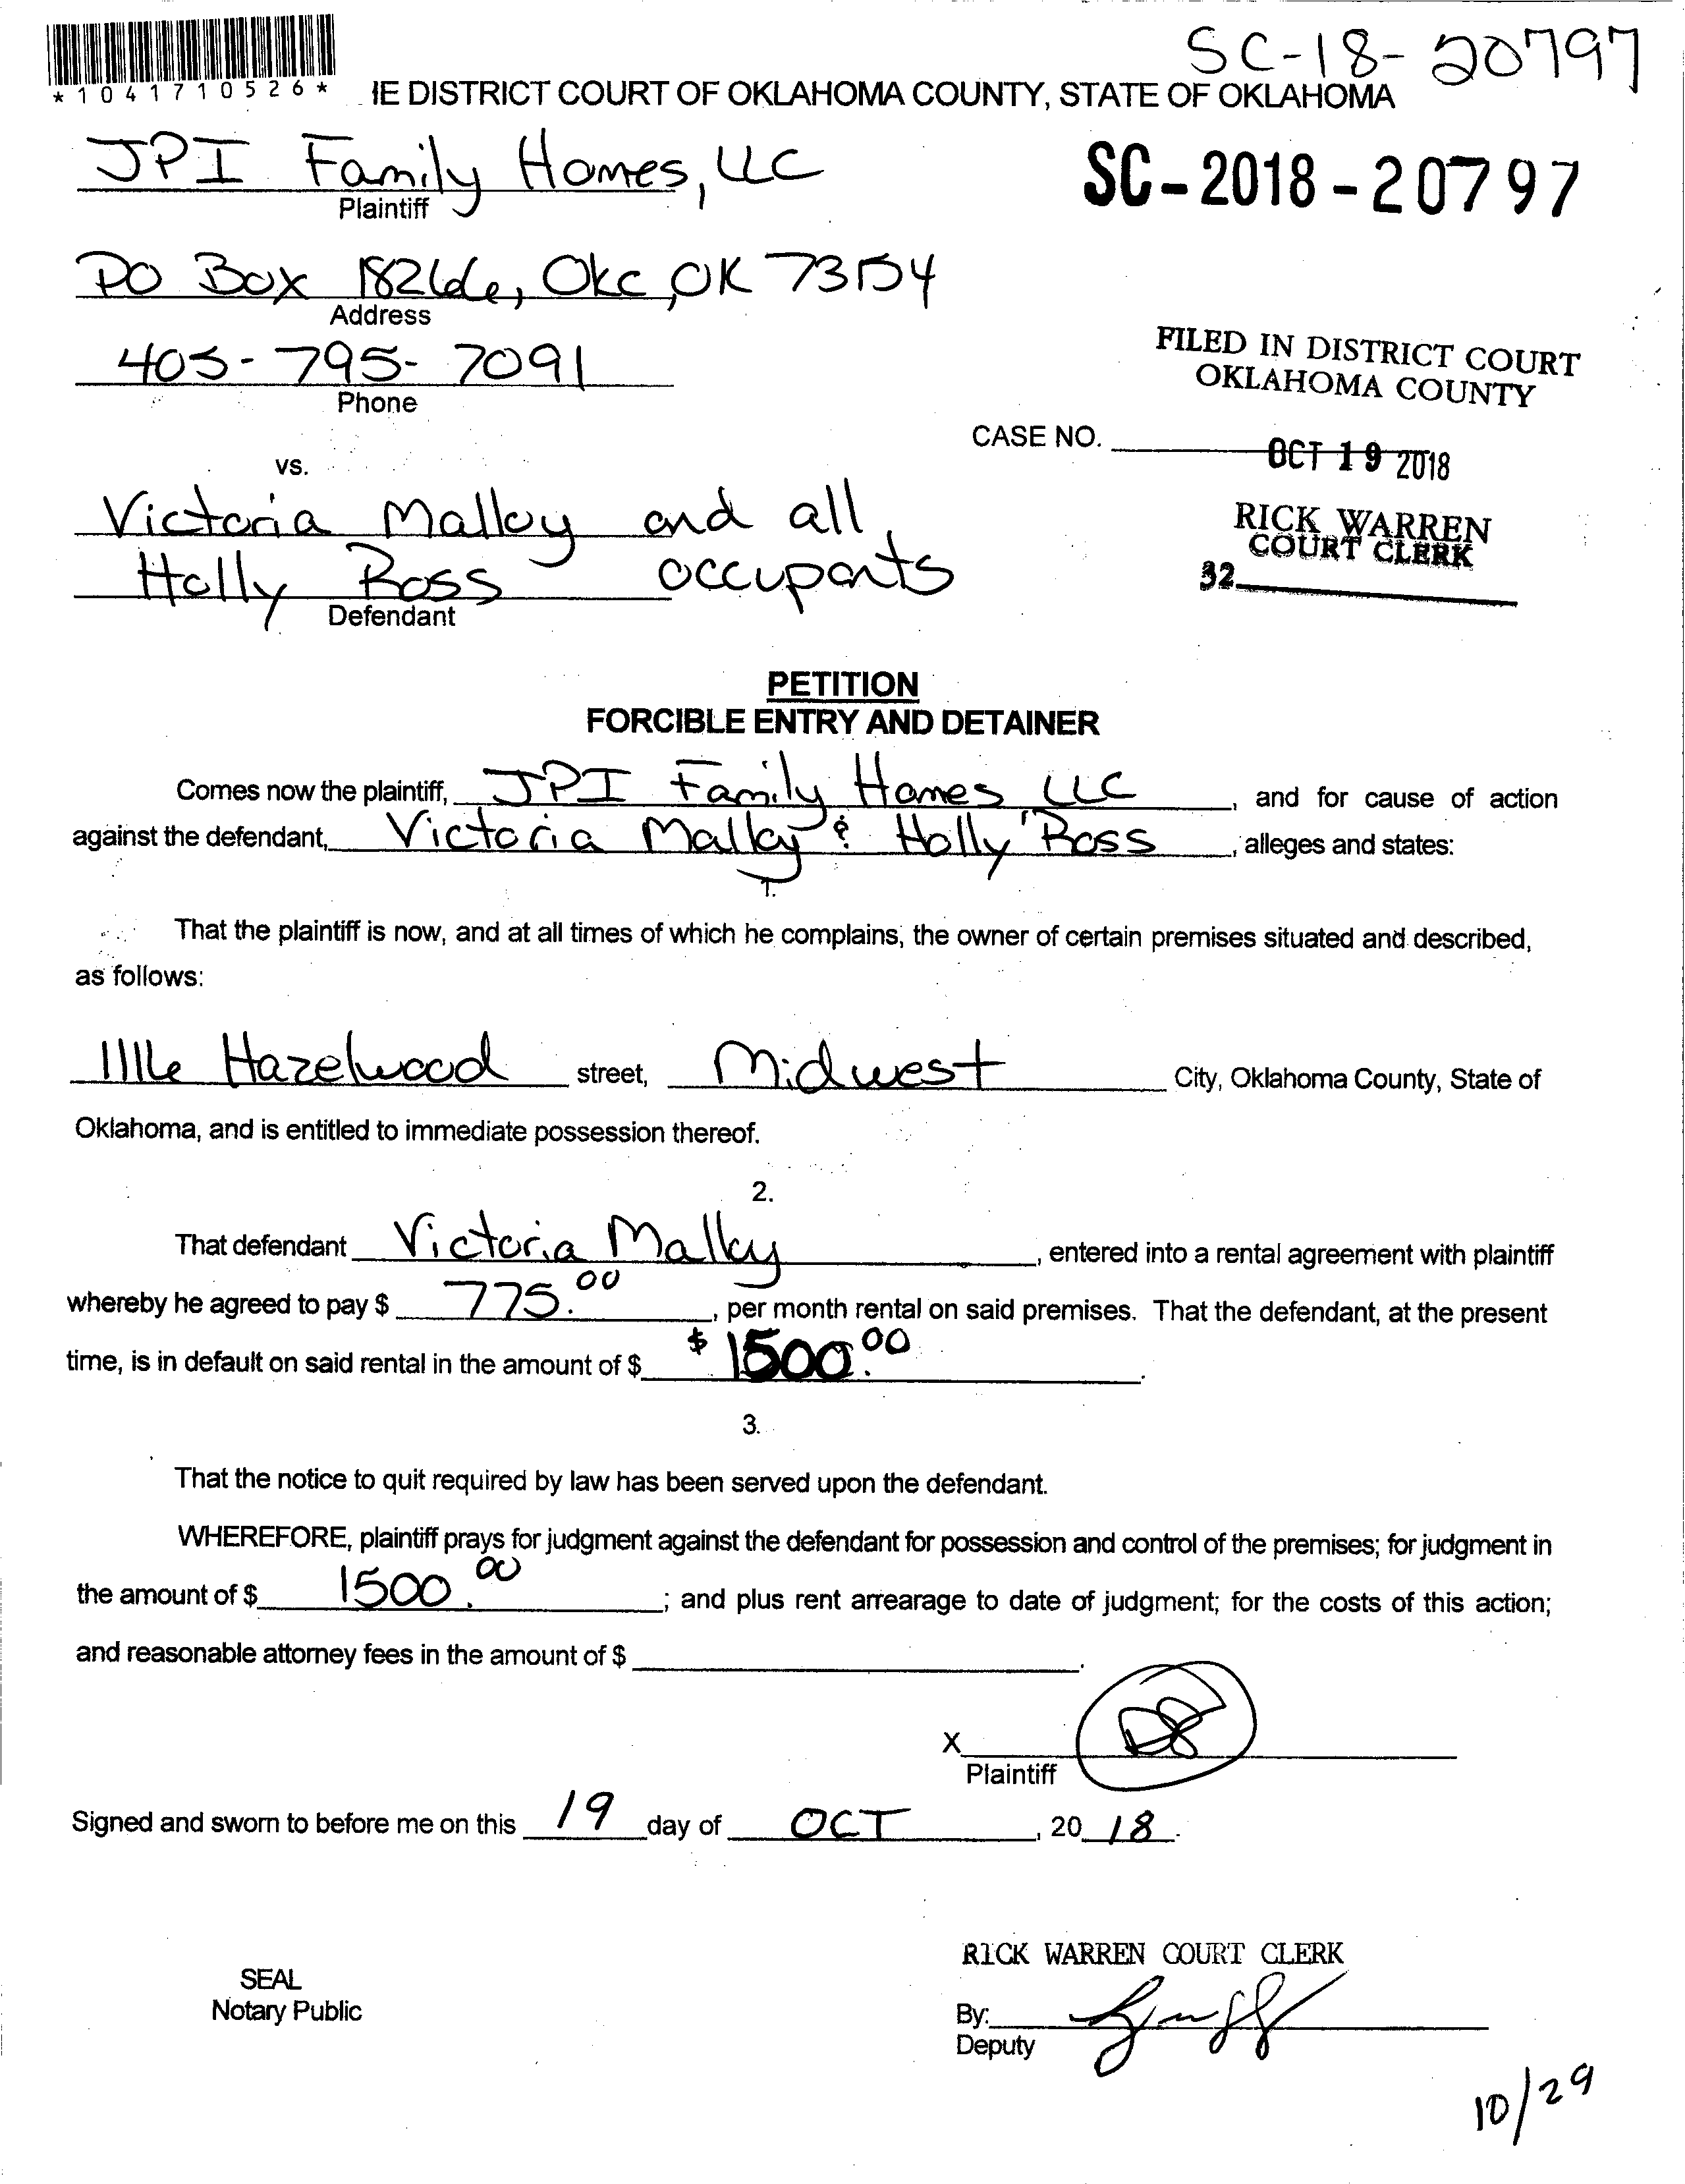 SC-18-20797
*1041710526*
IE DISTRICT COURT OF OKLAHOMA COUNTY, STATE OF OKLAHOMA
JPI Family Homes, LLC
Plaintiff
SC-2018-20797
PO Box 18266, OKC, OK 73154
Address
405-795-7091
Phone
FILED IN DISTRICT COURT
OKLAHOMA COUNTY
CASE NO.
OCT 19 2018
vs.
RICK WARREN
COURT CLERK
32
Victoria Malloy and all
Holly Ross occupants
Defendant
PETITION
FORCIBLE ENTRY AND DETAINER
Comes now the plaintiff, JPI Family Homes LLC, and for cause of action
against the defendant, Victoria Malloy & Holly Ross, alleges and states:
1.
That the plaintiff is now, and at all times of which he complains, the owner of certain premises situated and described,
as follows:
1116 Hazelwood street, Midwest City, Oklahoma County, State of
Oklahoma, and is entitled to immediate possession thereof.
2.
That defendant Victoria Malloy, entered into a rental agreement with plaintiff
whereby he agreed to pay $ 775.00, per month rental on said premises. That the defendant, at the present
time, is in default on said rental in the amount of $ $1500.00.
3.
That the notice to quit required by law has been served upon the defendant.
WHEREFORE, plaintiff prays for judgment against the defendant for possession and control of the premises; for judgment in
the amount of $ 1500.00; and plus rent arrearage to date of judgment; for the costs of this action;
and reasonable attorney fees in the amount of $ .
X
Plaintiff
Signed and sworn to before me on this 19 day of OCT, 20 18.
RICK WARREN COURT CLERK
SEAL
Notary Public
By:
Deputy
10/29